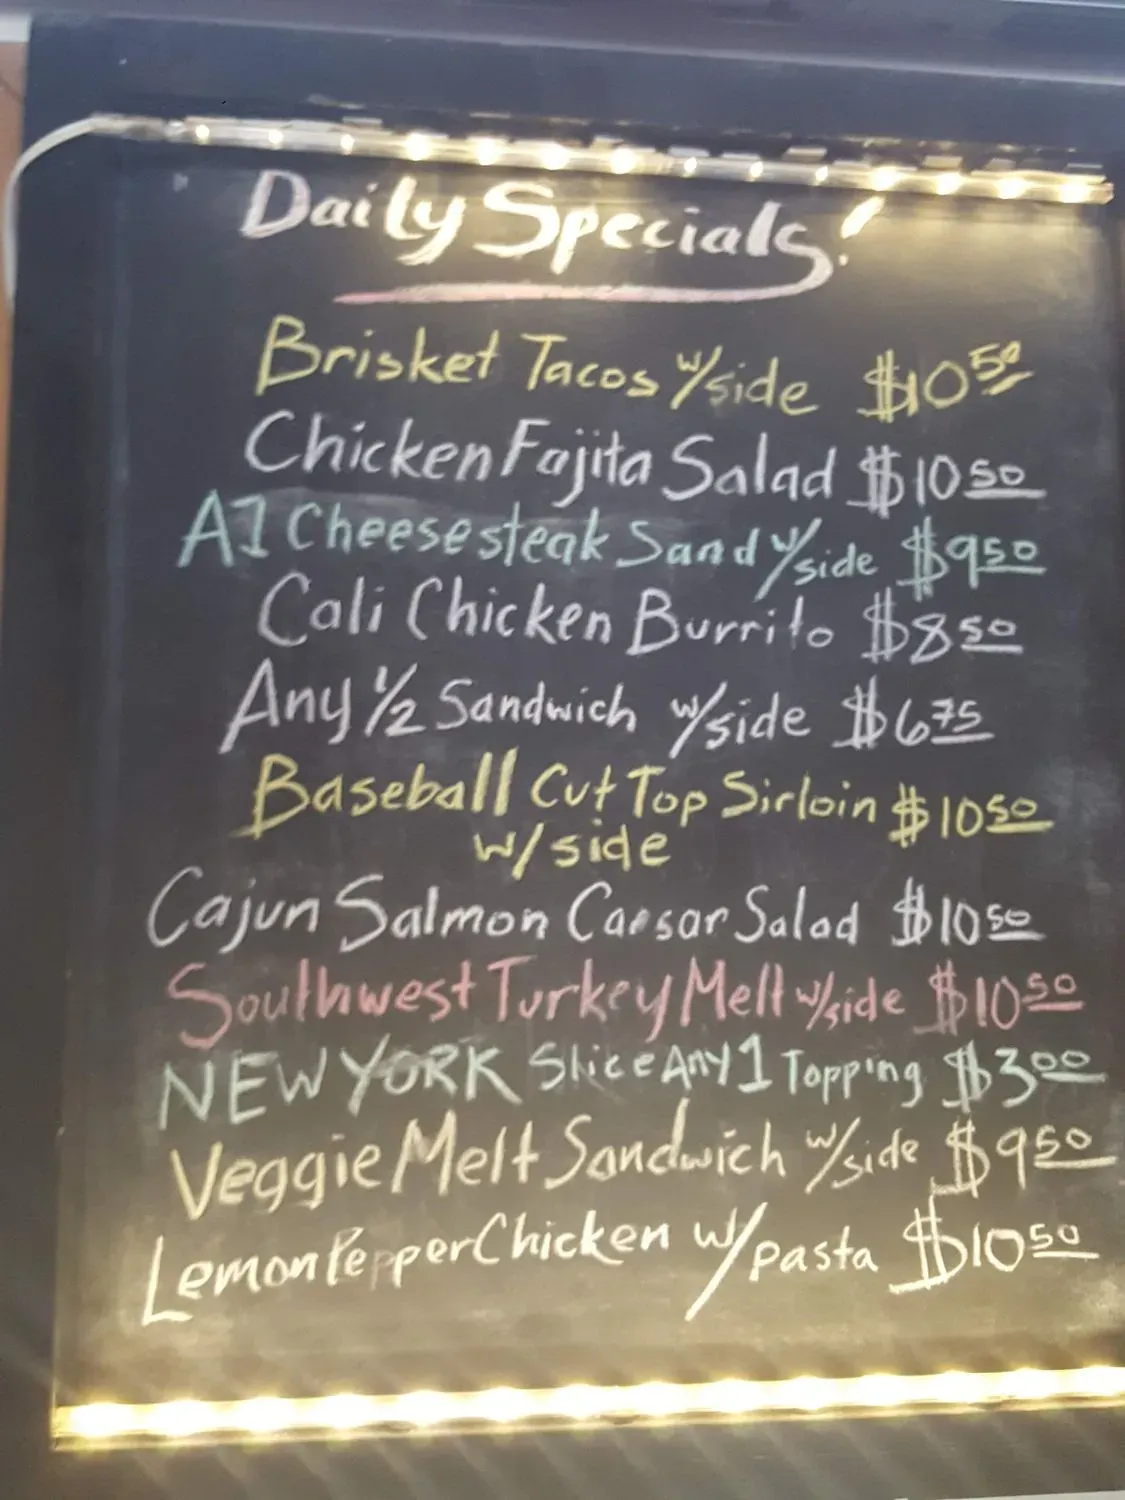 Daily Specials!
Brisket Tacos w/side $10 50
Chicken Fajita Salad $10 50
A1 Cheesesteak Sand w/side $9 50
Cali Chicken Burrito $8 50
Any 1/2 Sandwich w/side $6 75
Baseball Cut Top Sirloin $10 50
w/side
Cajun Salmon Caesar Salad $10 50
Southwest Turkey Melt w/side $10 50
NEW YORK Slice Any 1 Topping $3 00
Veggie Melt Sandwich w/side $9 50
Lemon Pepper Chicken w/pasta $10 50